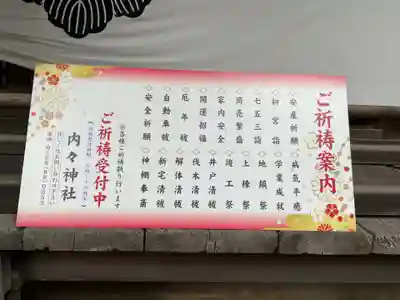 ご祈祷案内
◇安産祈願
◇病気平癒
◇初宮詣
◇学業成就
◇七五三詣
◇地鎮祭
◇商売繁盛
◇上棟祭
◇家内安全
◇竣工祭
◇開運招福
◇井戸清祓
◇厄年祓
◇伐木清祓
◇自動車祓
◇解体清祓
◇安全祈願
◇新宅清祓
◇神棚奉斎
※各種ご祈祷賜り行います
ご祈祷受付中
内々神社